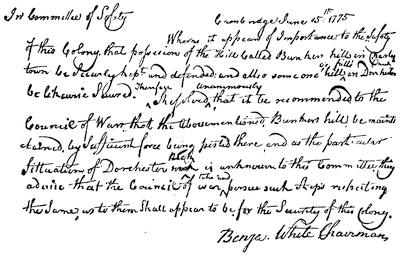 In Committee of Safety
Cambridge June 15th 1775
Whereas it appears of Importance to the Safety
of this Colony, that possession of the Hill Called Bunkers hill in Charles
town be Securely kept and defended; and also some one hill or hills on Dorchester Neck
be likewise Secured. Therefore
Resolved, Unanimously that it be recommended to the
Council of War, that the Abovementioned Bunkers hill be main
tained, by Sufficient force being posted there, and as the particular
Situation of Dorchester Neck is unknown to this Committee, they
advise that the Council of war take and pursue such Steps respecting
the Same, as to them Shall appear to be for the Security of this Colony.
Benja. White Chairman